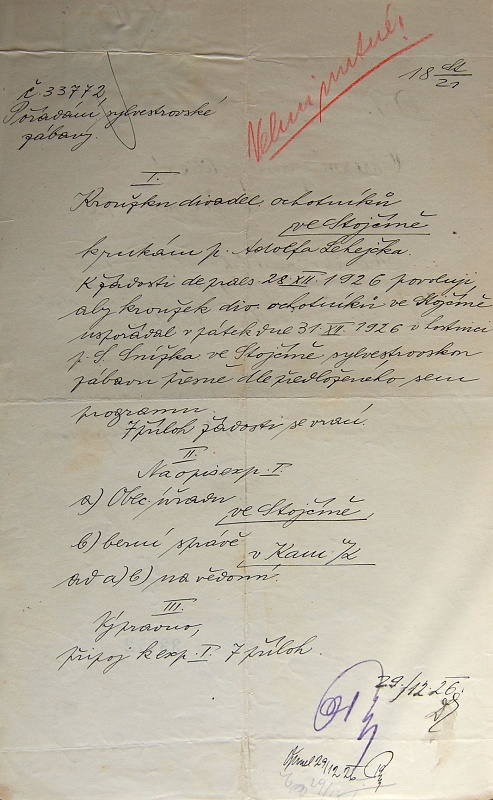 Velmi nutné!
18 St/21
č. 33772
Pořádání sylvestrovské
zábavy.
I.
Kroužku divadel. ochotníků
ve Stojčíně
k rukám p. Adolfa
K žádosti de praes. 28.XII.1926 povoluji,
aby kroužek div. ochotníků ve Stojčíně
uspořádal v pátek dne 31.XII.1926 v hostinci
p. S. Snížka ve Stojčíně sylvestrovskou
zábavu přesně dle předloženého sem
programu.
7 příloh žádosti se vrací.
II.
Na opis exp. I.
a) Obec. úřadu ve Stojčíně,
b) berní správě v Kam. /L
ad a) b) na vědomí.
III.
Výpravno,
připoj k exp. I. 7 příloh.
29./12.26.
29/12 26